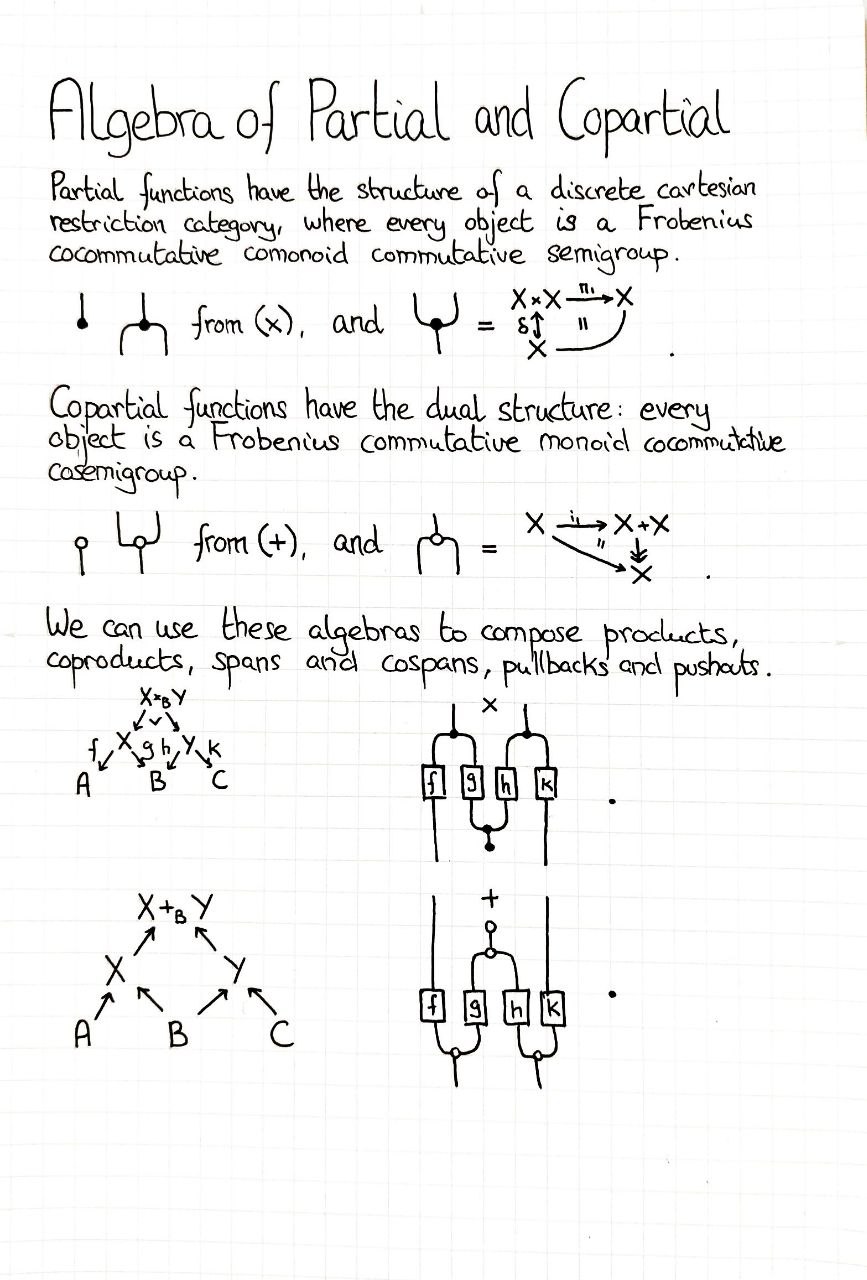 Algebra of Partial and Copartial
Partial functions have the structure of a discrete cartesian
restriction category, where every object is a Frobenius
cocommutative comonoid commutative semigroup.
from (×), and = X×X π₁ X
δ "
X .
Copartial functions have the dual structure: every
object is a Frobenius commutative monoid cocommutative
cosemigroup.
from (+), and = X i₁ X+X
"
X .
We can use these algebras to compose products,
coproducts, spans and cospans, pullbacks and pushouts.
X×_B Y
f X g h Y k
A B C
×
f g h k .
X+_B Y
X Y
A B C
+
f g h k .